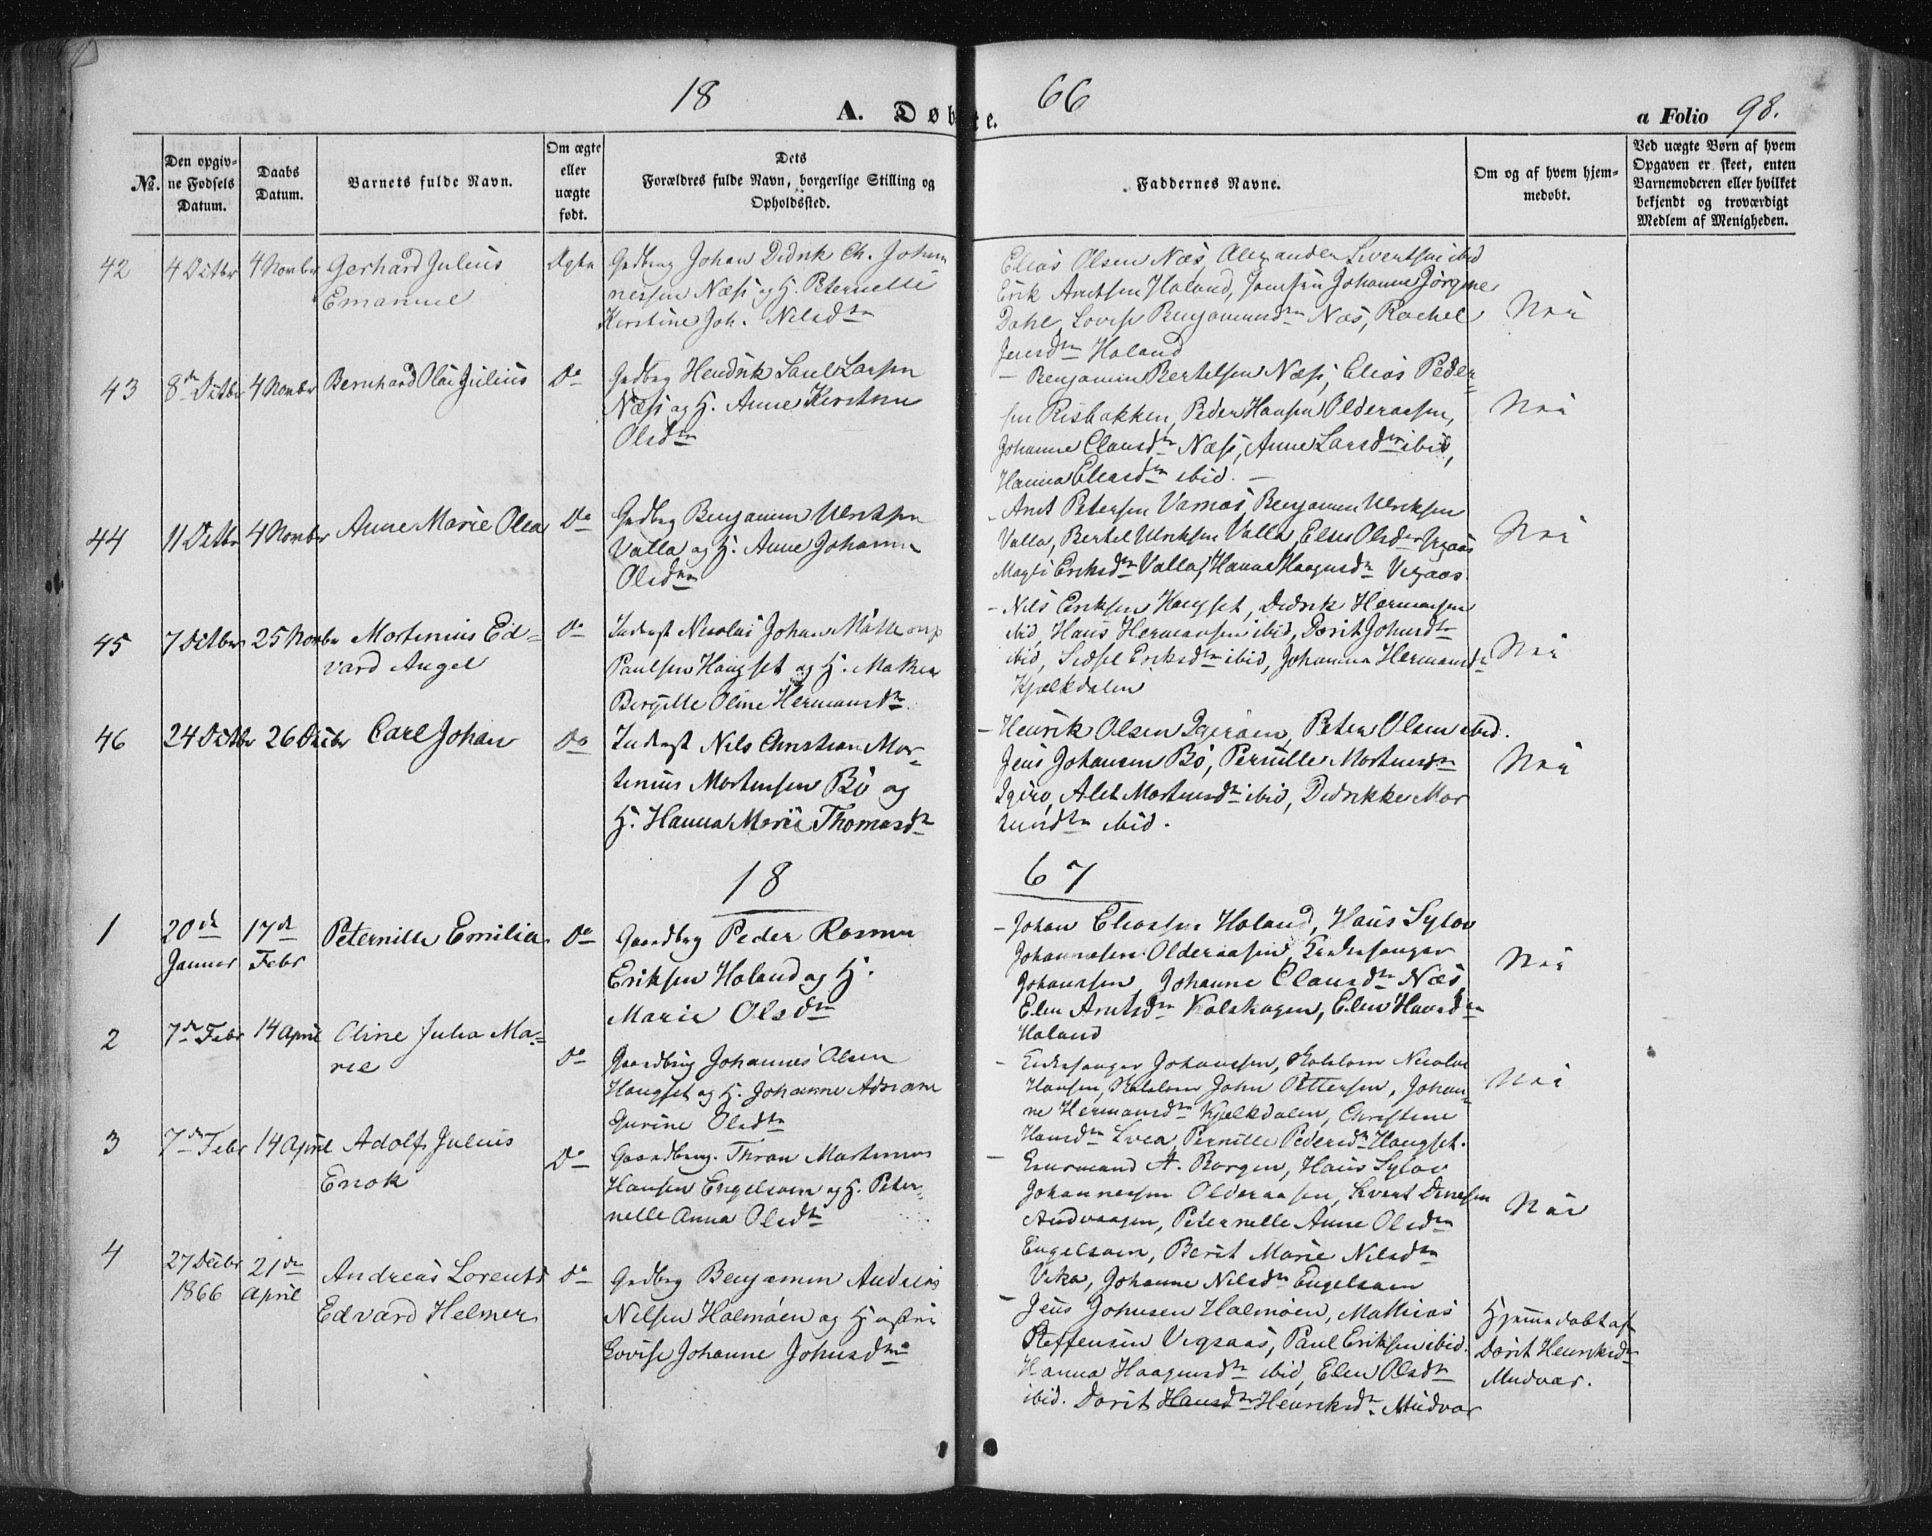 18 66
A. Døbte.
a Folio 98.
No.
Den opgiv-
ne Fødsels
Datum.
Daabs
Datum.
Barnets fulde Navn.
Om ægte
eller
uægte
født.
Dets
Forældres fulde Navn, borgerlige Stilling og
Opholdssted.
Faddernes Navne.
Om og af hvem hjem-
medøbt.
Ved uægte Børn af hvem
Opgaven er skeet, enten
Barnemoderen eller hvilket
bekjendt og troværdigt
Medlem af Menigheden.
42 4 Octbr 4 Novbr Gerhard Julius
Emanuel
Ægte
Gdbrg Johan Didrik Ch. Johan
nessen Næss og H. Peternelle
Kirstine Joh. Nilsdtr
Elias Olsen Næs, Alexander Sivertsen ibid
Erik Arntsen Holand, Johanne Jørgine
Dahl, Lovise Benjaminsdtr Næs, Rachel
Jensdtr Holand
Nei
43 8de Octbr 4 Novbr Bernhard Olai Julius Do
Gdbrg Hendrik Paul Larsen
Næss og H. Anne Kirstine
Olsdtr
- Benjamin Bertelsen Næss, Elias Peder-
sen Risbakken, Peder Hansen Olderaasen,
Johanne Clausdtr Næss, Anne Larsdtr ibid,
Hanna Eliasdtr ibid. -
Nei
44 11 Octbr 4 Novbr Anne Marie Olea Do
Gdbrg Benjamin Ulriksen
Valla og H. Anne Johanna
Olsdtr
- Arnt Petersen Varnæs, Benjamin Ulriksen
Valla, Bertel Ulriksen Valla, Elen Olsdtr Vigaas
Magli Eriksdtr Valla, Hanna Haagensdtr Vigaas.
Nei
45 7 Octbr 25 Novbr Mortinius Ed-
vard Angel
Do
Inderst Nicolai Johan
Paulsen Hongset og H.
Birgitte Oline Hermansdtr.
- Nils Eriksen Hongset, Didrik Hermansen
ibid, Hans Hermansen ibid, Dorit Johnsdtr
ibid, Sidsel Eriksdtr ibid, Johanna Hermansdtr
Kjelkdalen
Nei
46 24 Octbr 26 Decbr Carl Johan Do
Inderst Nils Christian Mor-
tinius Mortensen Bø og
H. Hanna Marie Thomasdtr
- Henrik Olsen Igerøen, Peter Olsen ibid.
Jens Johansen Bø, Pernille Mortensdtr
Igerø, Alet Mortensdtr ibid, Didrikke Mor
tensdtr ibid.
Nei
18 67
1 20de
Januar
17de
Febr
Peternille Emilia Do
Gaardbrg Peder Rasmus
Eriksen Holand og H.
Marie Olsdtr
- Johan Eliassen Holand, Hans Sylov
Johannesen Olderaasen, Kirkesanger
Johansen, Johanne Clausdtr Næs,
Elen Arntsdtr Kalskagen, Elen Hansdtr
Holand
Nei
2 7de Febr 14 April Oline Julia Ma-
rie
Do
Gaardbrg Johannes Olsen
Hongset og H. Johanne Adriane
Gurine Olsdtr
- Kirkesanger Johansen, Nicolai
Hansen, John Pettersen, Johan-
ne Hermansdtr Kjelkdalen, Christine
Hansdtr Pernille Pedersdtr Hongset.
Nei
3 7de Febr 14 April Adolf Julius
Enok
Do
Gaardbrug. Thron Martinus
Hansen Engelsøen og H. Peter-
nelle Anna Olsdtr
- A. Borgen, Hans Sylov
Johannesen Olderaasen, Sivert
Andraasen, Peternelle Anne Olsdtr
Engelsøen, Berit Marie Nilsdtr
Vika, Johanne Nilsdtr Engelsøen
Nei
4 27 Decbr
1866
21de
April
Andreas Lorents
Edvard Helmer
Do
Gdbrg Benjamin Andreas
Nilsen Holmøen og H.
Lovise Johanne Johnsdtr
- Jens Johnsen Holmøen, Mathias
Steffensen Vigaas, Paul Eriksen ibid.
Hanna Haagensdtr ibid, Elen Olsdtr
ibid. Dorit Hansdtr Henriksdtr. Mudvær
Hjemmedøbt af
Dorit Henriksdtr
Mudvær.